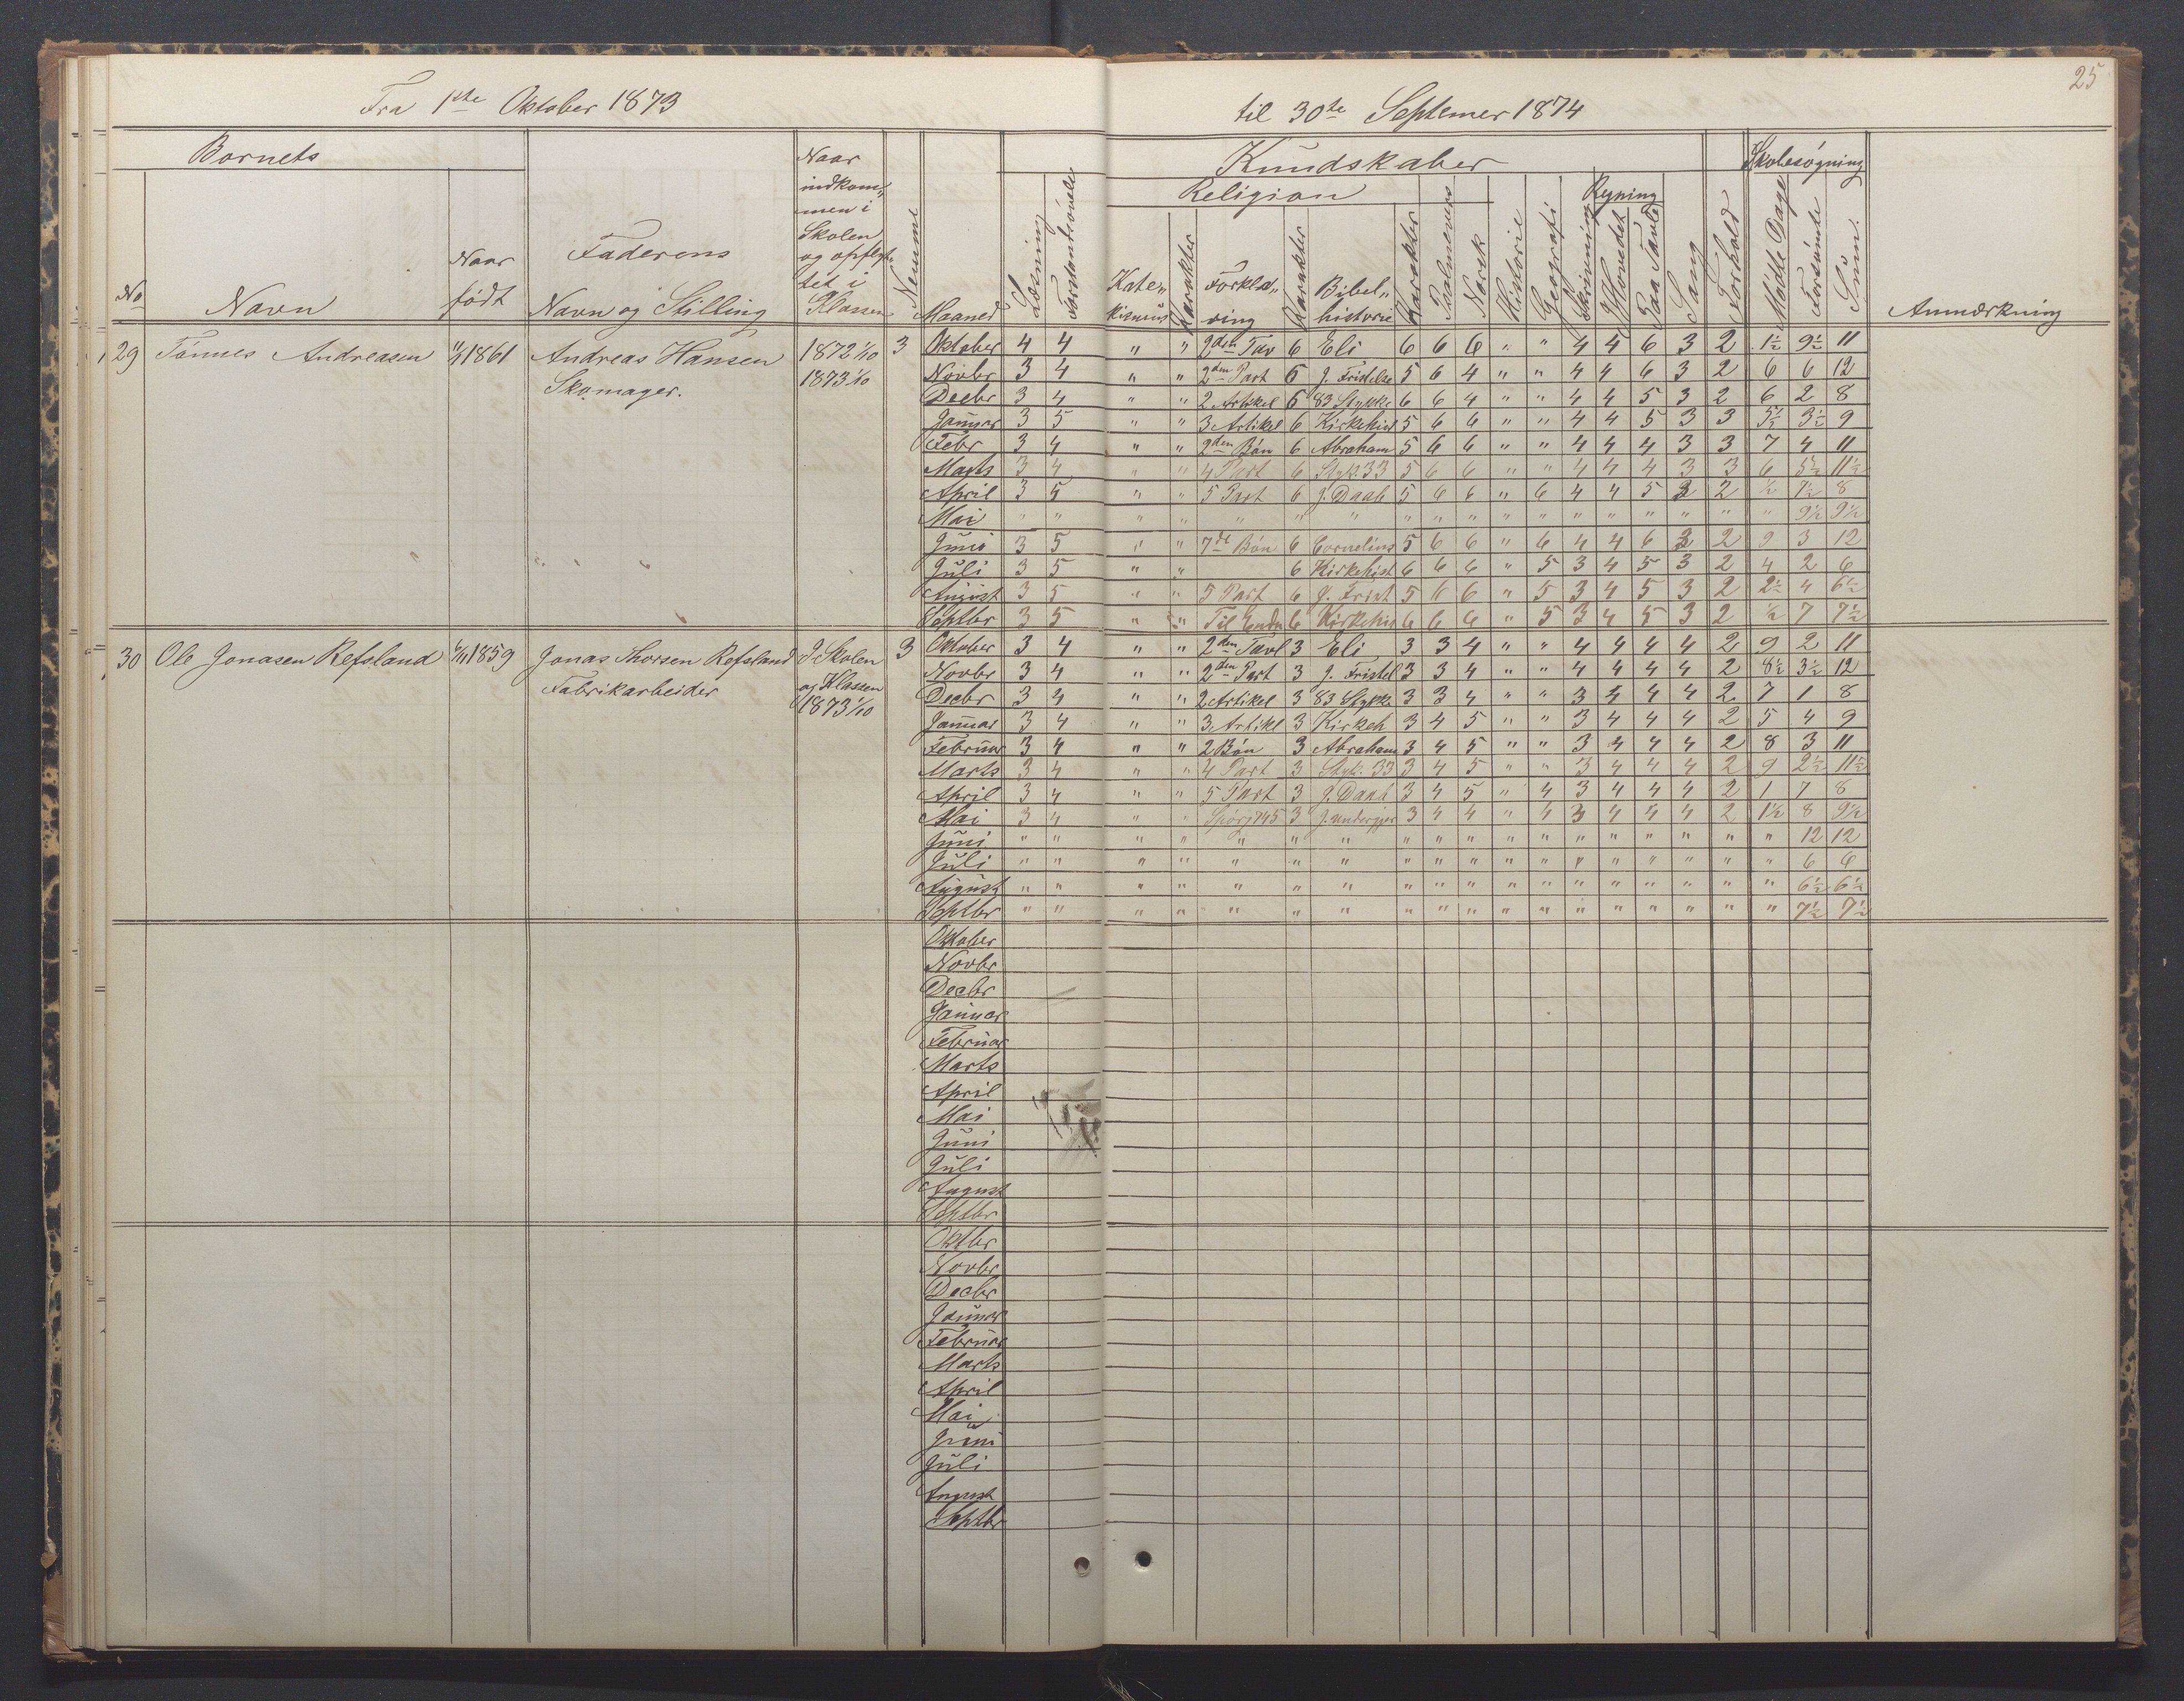 25
Fra 1ste Oktober 1873 til 30te Septemer 1874
Barnets Naar indkom„ men i Skolen og opflyt„ tet i Klassen Kundskaber Skolesøgning
Religion Regning
No Navn Naar født Faderens Navn og Stilling Nummer Maaned Læsning Kate„ kismus Karakter Forkla„ ring Karakter Bibel„ historie Karakter Psalmevers Norsk Historie Geografi Skrivning I Hovedet Paa Tavle Sang Forhold Mødte Dage Forsømte Sum. Anmærkning
29 Tønnes Andreasen 1861 Andreas Hansen 1872 1/10 3 Oktober 4 4 „ „ 2den Tav 6 Eli 6 6 6 „ „ 4 4 6 3 2 1½ 9½ 11
Skomager. 1873 1/10 Novbr 3 4 „ „ 2den Part 6 J. Fristelse 5 6 4 „ „ 4 4 6 3 2 6 6 12
Decbr 3 4 „ „ 2 Artikel 6 83 Stykke 6 6 4 „ „ 4 4 5 3 2 6 2 8
Januar 3 5 „ „ 3 Artikel 6 Kirkehist 5 6 6 „ „ 4 4 5 3 3 5½ 3½ 9
Febr 3 4 „ „ 2den Bøn 6 Abraham 5 6 6 „ „ 4 4 4 3 3 7 4 11
Marts 3 4 „ „ 4 Part 6 Styk. 33 5 6 6 „ „ 4 4 4 3 3 6 5½ 11½
April 3 5 „ „ 5 Part 6 J. Daab 5 6 6 „ 6 4 4 5 3 2 ½ 7½ 8
Mai „ „ „ „ „ „ „ „ „ „ „ „ „ „ „ „ „ „ 9½ 9½
Juni 3 5 „ „ 7de Bøn 6 Cornelius 5 6 6 „ 6 4 4 6 3 2 9 3 12
Juli 3 5 „ „ 6 Kirkehist 6 6 6 „ 5 3 4 5 3 2 4 2 6
August 3 5 „ „ 5 Part 6 J. Frist 5 6 6 „ 5 3 4 5 3 2 2½ 4 6½
Septbr 3 5 „ „ Til Enden 6 Kirkehis 6 6 6 „ 5 3 4 5 3 2 ½ 7 7½
30 Ole Jonasen Refsland 1859 Jonas Thorsen Refsland I Skolen 3 Oktober 3 4 „ „ 2den Tavl 3 Eli 3 3 4 „ „ 4 4 4 4 2 9 2 11
Fabrikarbeider og Klassen Novbr 3 4 „ „ 2den Part 3 J. Fristel 3 3 4 „ „ 4 4 4 4 2 8½ 3½ 12
1873 1/10 Decbr 3 4 „ „ 2 Artikel 3 83 Stykke 3 3 4 „ „ 3 4 4 4 2 7 1 8
Januar 3 4 „ „ 3 Artikl 3 Kirkeh 3 4 5 „ „ 3 4 4 4 2 5 4 9
Februar 3 4 „ „ 2 Bøn 3 Abraham 3 4 5 „ „ 3 4 4 4 2 8 3 11
Marts 3 4 „ „ 4 Part 3 Styk. 33 3 4 5 „ „ 3 4 4 4 2 9 2½ 11½
April 3 4 „ „ 5 Part 3 J. Daab 3 4 5 „ 4 3 4 4 4 2 1 7 8
Mai 3 4 „ „ 3 3 4 4 „ 4 3 4 4 4 2 1½ 8 9½
Juni „ „ „ „ „ „ „ „ „ „ „ „ „ „ „ „ „ „ 12 12
Juli „ „ „ „ „ „ „ „ „ „ „ „ „ „ „ „ „ „ 6 6
August „ „ „ „ „ „ „ „ „ „ „ „ „ „ „ „ „ „ 6½ 6½
Septbr „ „ „ „ „ „ „ „ „ „ „ „ „ „ „ „ „ „ 7½ 7½
Oktober
Novbr
Decbr
Januar
Februar
Marts
April
Mai
Juni
Juli
August
Septbr
Oktbr
Novbr
Decbr
Januar
Februar
Marts
April
Mai
Juni
Juli
August
Septbr